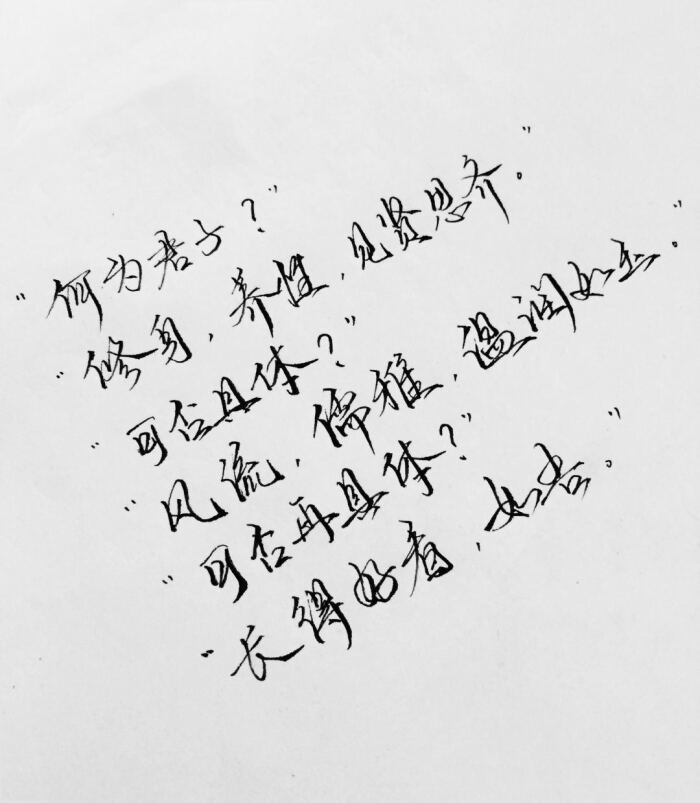 “何为君子？”
“修身，养性，见贤思齐。”
“可否具体？”
“风流，儒雅，温润如玉。”
“可否再具体？”
“长得好看，如吾。”